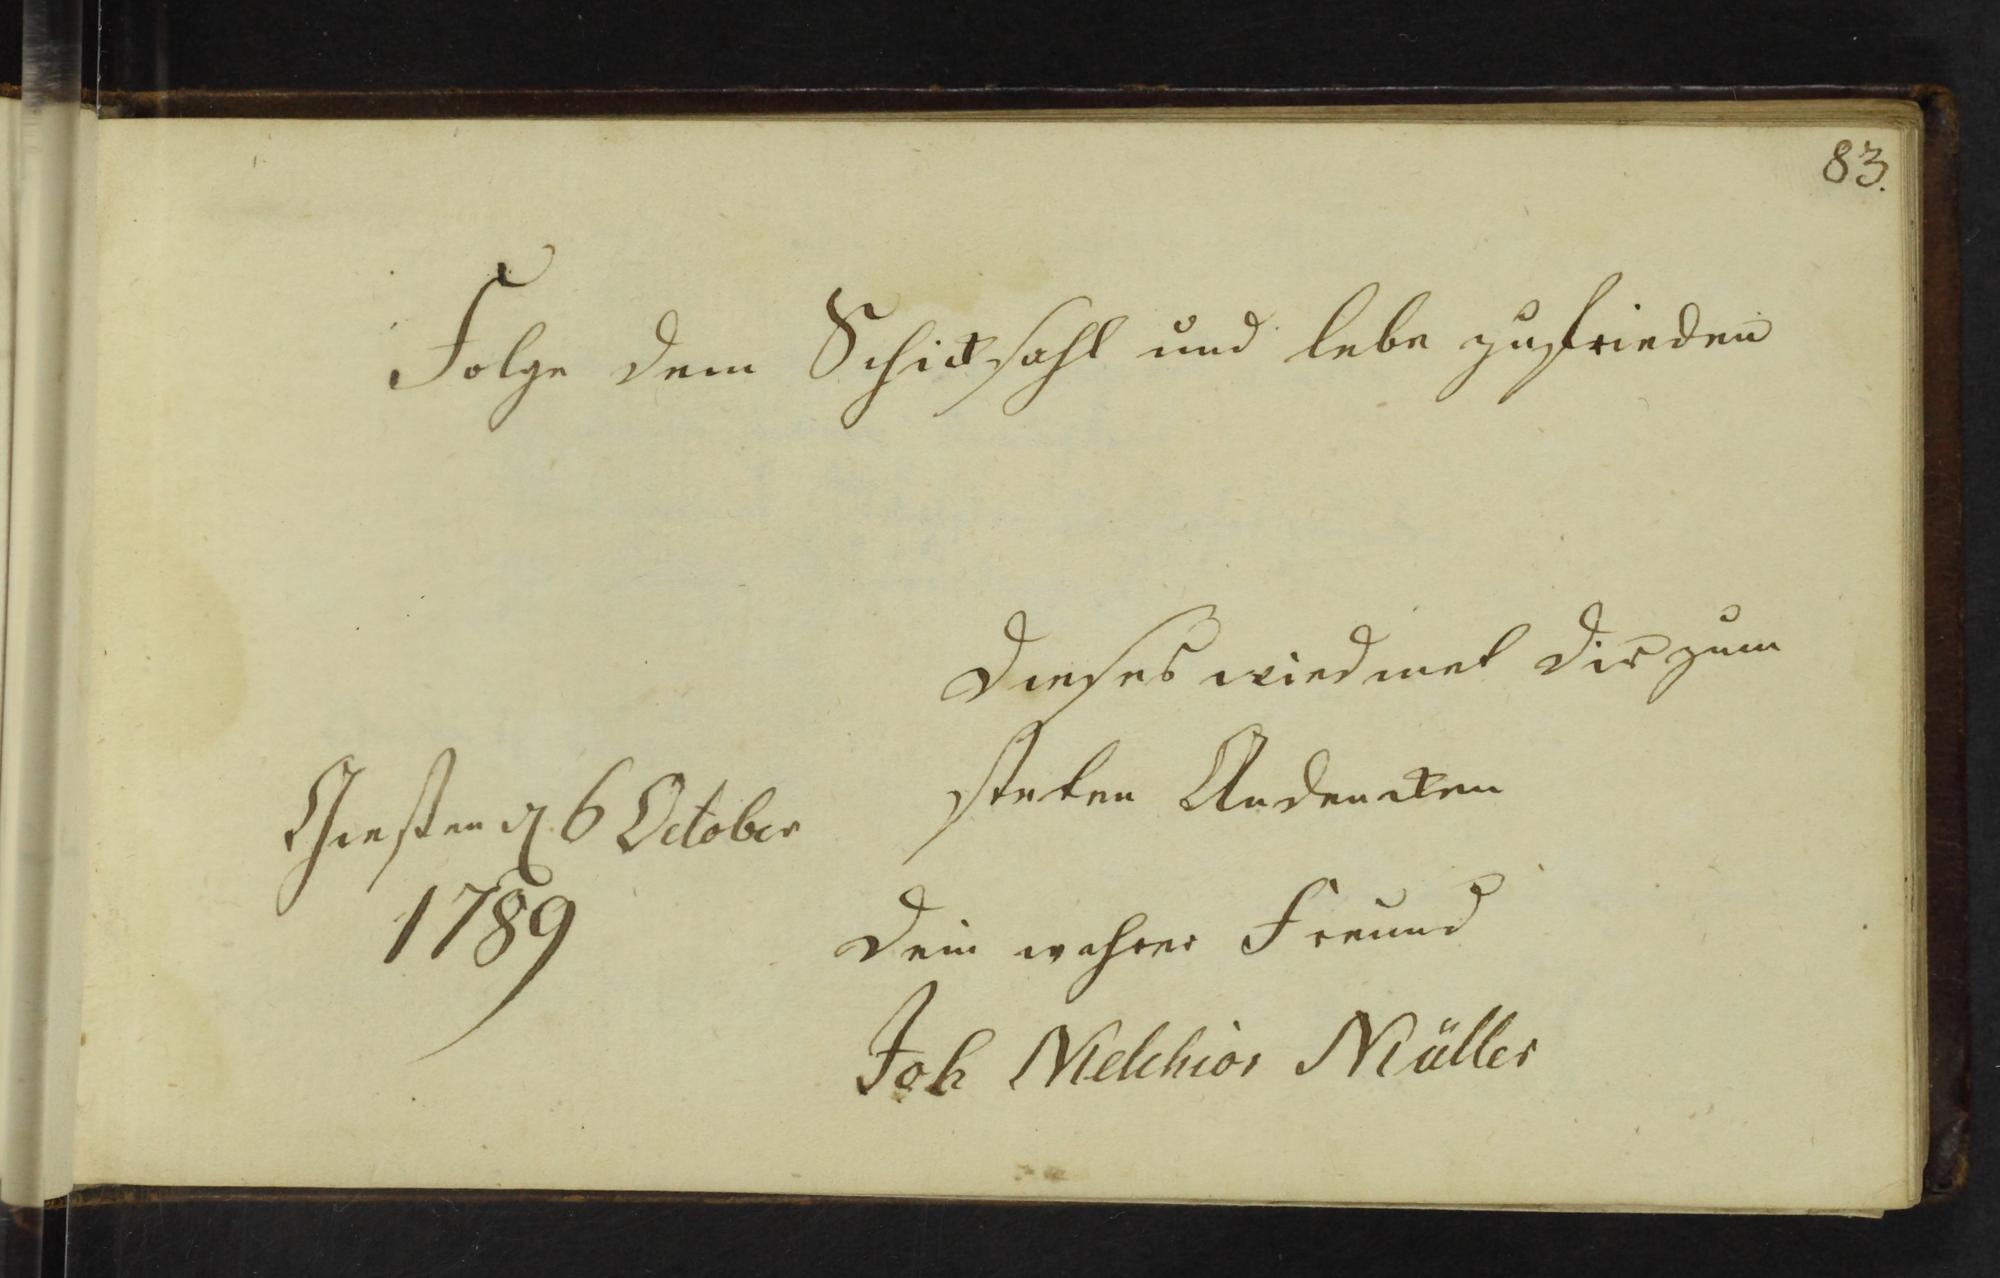 83.
Folge dem Schicksahl und lebe zufrieden
Dieses wiedmet dir zum
steten Andencken
Giessen d 6 October
1789
Dein wahrer Freund
Joh Melchior Müller